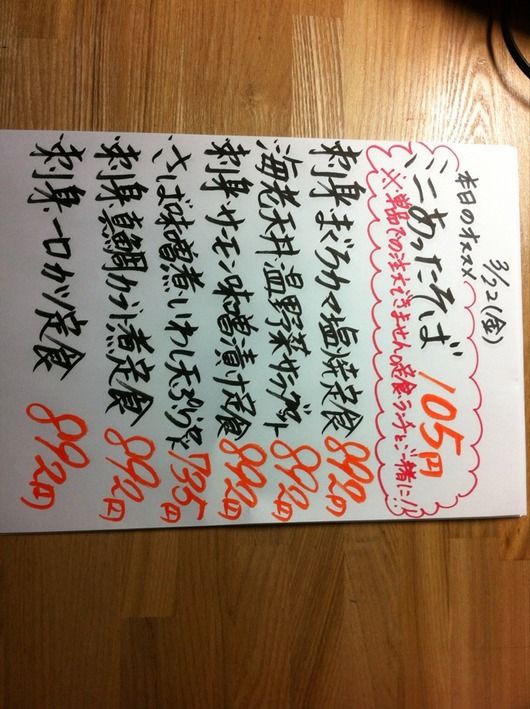 3/22(金)
本日のオススメ
ミニあったそば 105円
※単品での注文できません。定食・ランチとご一緒に!?
刺身・まぐろカマ塩焼定食 892円
海老天丼・温野菜サラダセット 892円
刺身・サーモン味噌漬け定食 892円
さば味噌煮・いわし天ぷら定 735円
刺身・真鯛カブト煮定食 892円
刺身・一口カツ定食 892円